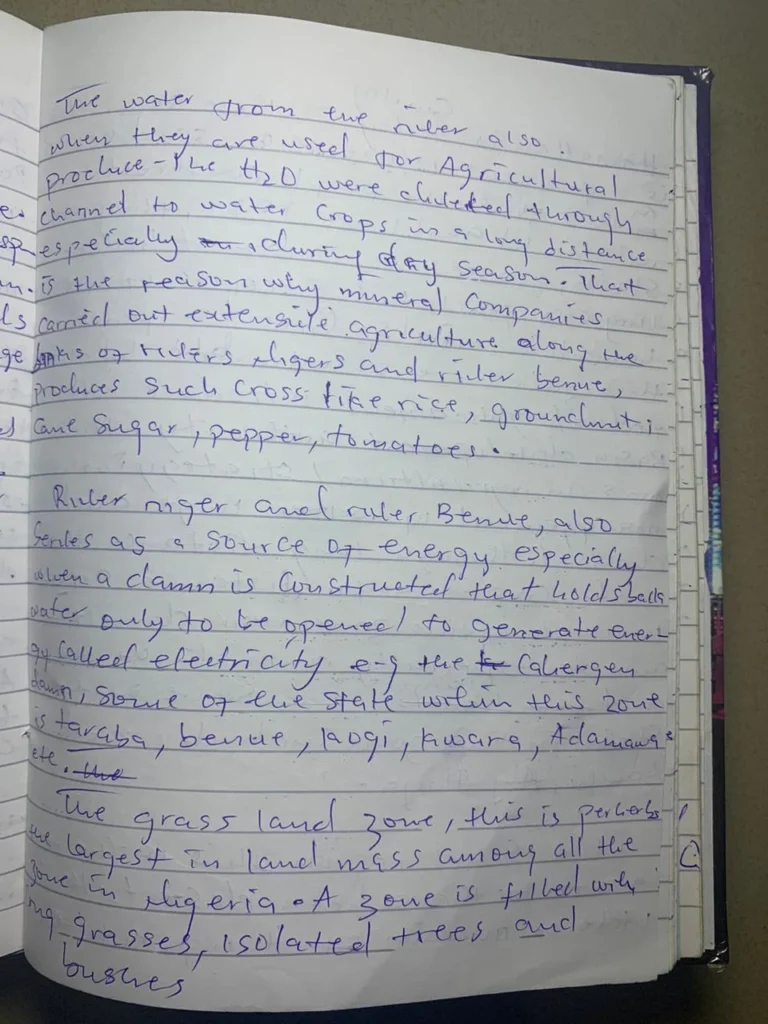 The water from the river also.
when they are used for Agricultural
produce - The H2O were through
channel to water Crops in a long distance
especially during dry season. That
is the reason why mineral companies
carried out extensive agriculture along the
banks of rivers Nigers and river benue,
produces such cross like rice, groundnut,
cane sugar, pepper, tomatoes.
River niger and river Benue, also
serves as a source of energy especially
when a damn is constructed that holds back
water only to be opened to generate ener-
gy called electricity e-g the
damn, some of the state within this zone
is taraba, benue, kogi, kwara, Adamawa
etc. the
The grass land zone, this is perherbs
the largest in land mass among all the
zone in Nigeria. A zone is filled with
grasses, isolated trees and
bushes